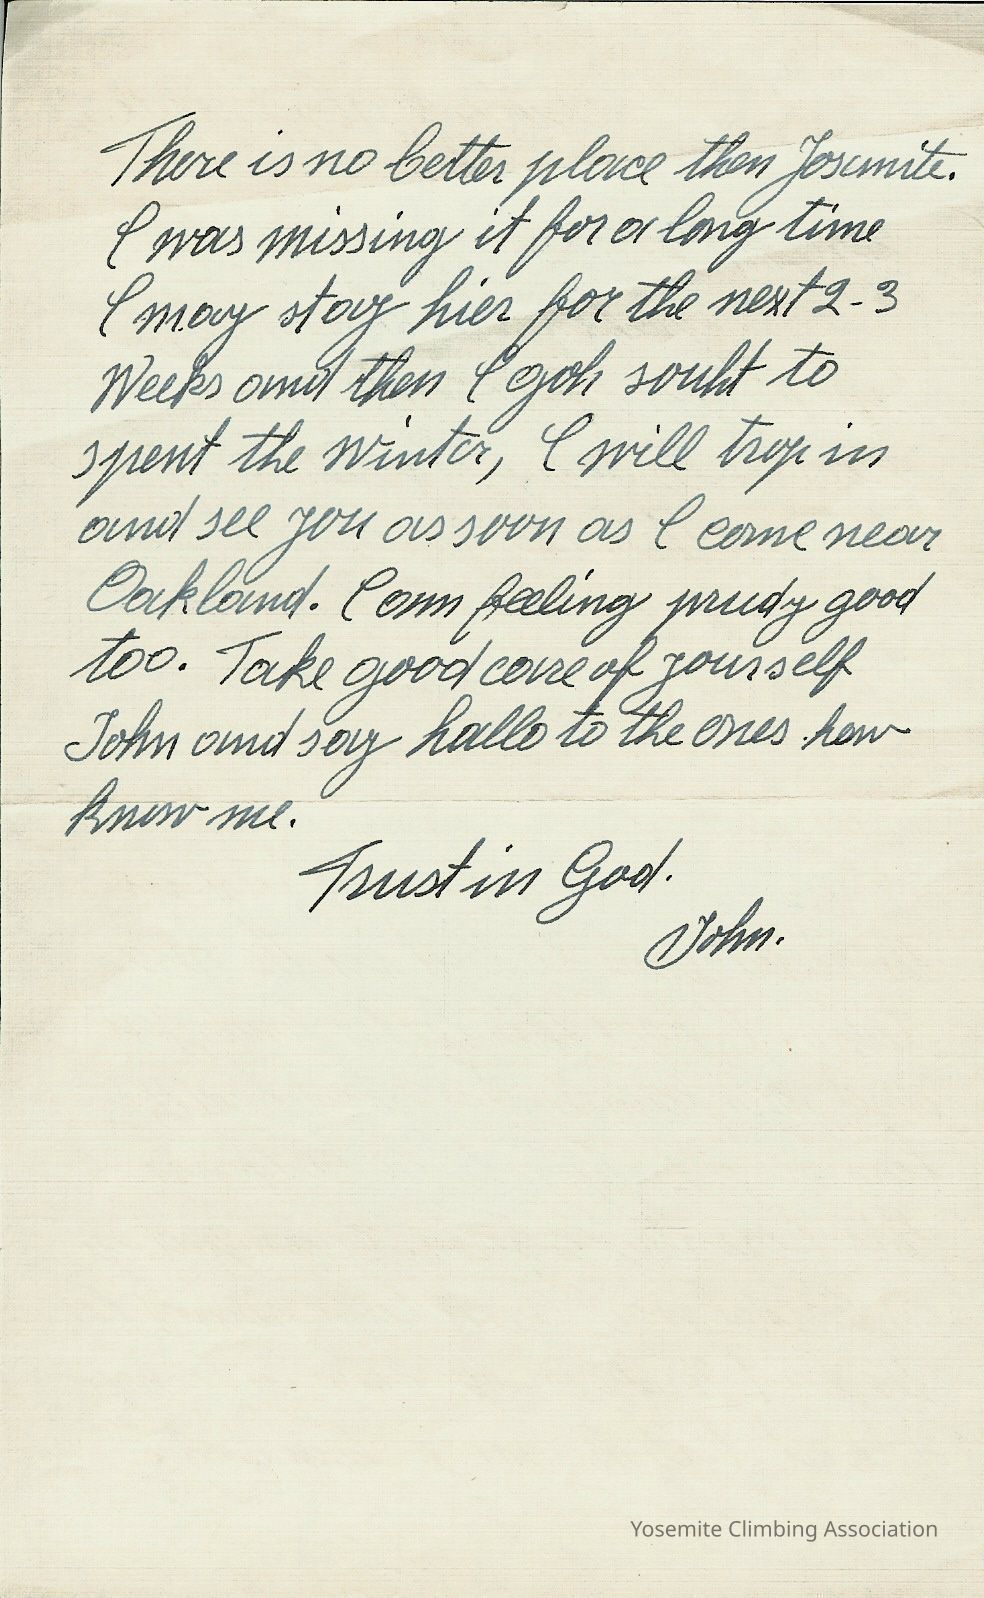 There is no better place then Josemite.
I was missing it for a long time
I may stay hier for the next 2-3
Weeks and then I goh souht to
spent the winter, I will trop in
and see you as soon as I come near
Oakland. I am feeling prudy good
too. Take good care of yourself
John and say hallo to the ones how
know me.
Trust in God.
John.
Yosemite Climbing Association